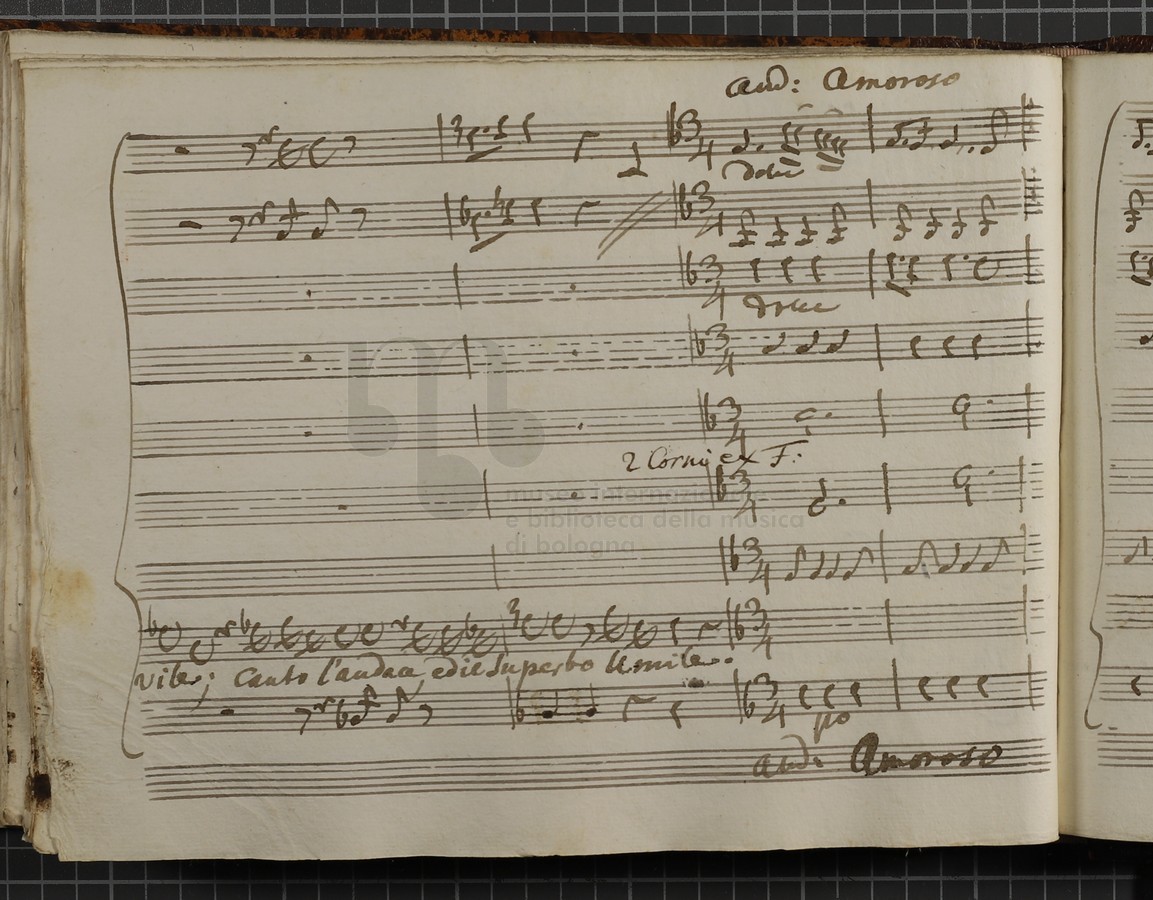 And: Amoroso
3 4
dolce
3 4
3 4
dolce
3 4
3 4
2 Corni ex F:
3 4
museo internazionale
e biblioteca della musica
di bologna
3 4
3 4
vile; Canto l'audace, ed il superbo Umile.
3 4
po
And: Amoroso